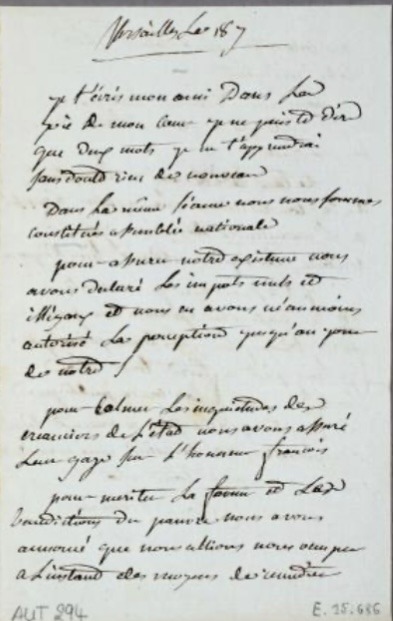 Versailles Le 18 7
je t'écris mon ami Dans La
joie De mon Cœur je ne puis te dire
que Deux mots je ne t'apprendrai
sans doute rien de nouveau
Dans La même séance nous nous sommes
constitués assemblée nationale
pour assurer notre existence nous
avons déclaré Les impots nuls et
illégaux et nous en avons néanmoins
autorisé La perception jusqu'au jour
de notre
pour calmer Les inquietudes des
créanciers de L'état nous avons assuré
Leur gage sur L'honneur françois
pour meriter La faveur et Les
benedictions du pauvre nous avons
annoncé que nous allions nous occuper
a L'instant des moyens de remedier
AUT 294
E. 28.686